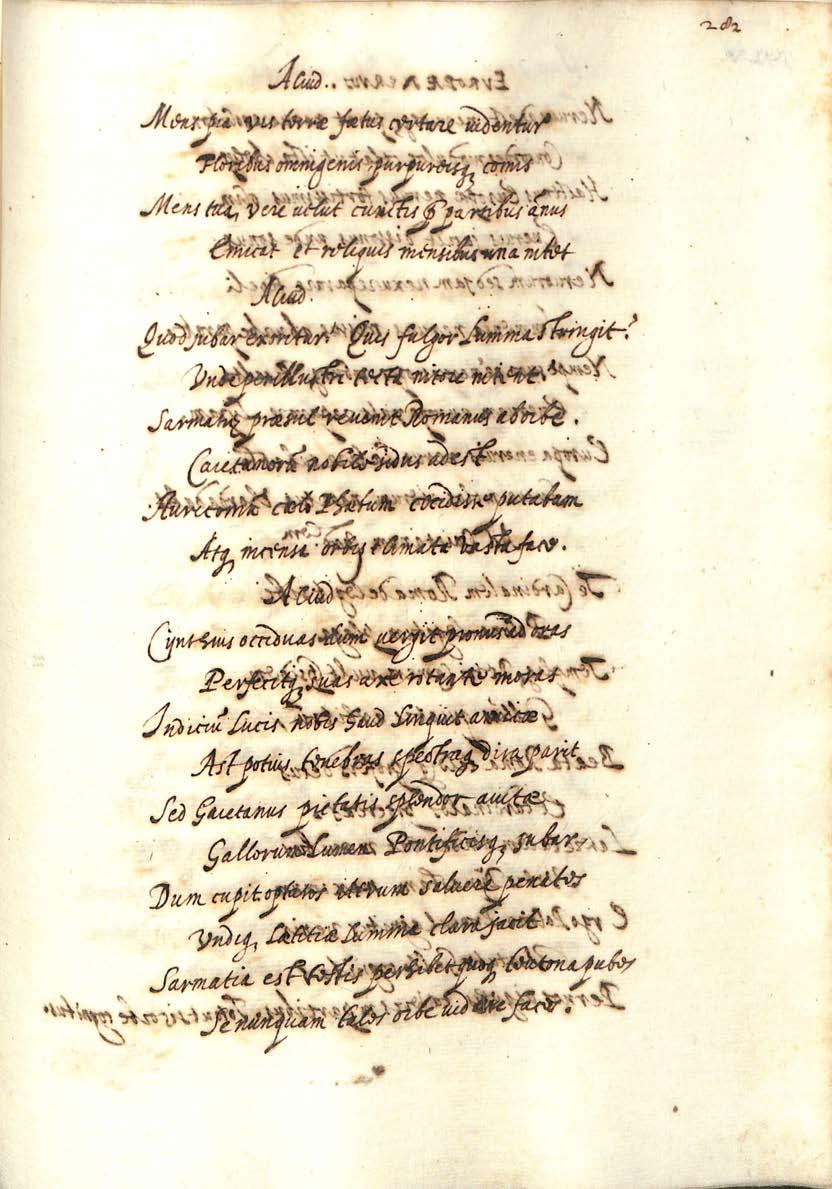 282
Aliud..
Mens pia vis terræ fætus certare uidentur
Floribus omnigenis purpureisq, comis
Mens tua, vere uelut cunctis p partibus anus
Emicat et reliquis mensibus una nitet
Aliud.
Quod jubar exoritur? Quis fulgor Lumina stringit?
Vnde perillustri tecta nitore nitent?
Sarmatiq præsul reuenit Romanus ab orbe.
Caietanorũ nobile sidus adest
Auricomæ cælo Phætum cecidisse putabam
Atq, incensa orbis flamata vasta face.
Aliud
Cynthius occiduas dum uergit pronus ad oras
Perficitq, suas axe rotante moras
Indiciũ Lucis nobis haud Linquit amicæ
Ast potius tenebras spectraq, dira parit
Sed Gaietanus pietatis splendor auitæ
Gallorum Lumen Pontificisq, jubar
Dum cupit optatos iterum saluere penates
Vndiq, Lætitiæ Lumina clara jacit
Sarmatia est testis perhibet quoq, teutona pubes
Se nunquam tales orbe uidere faces.